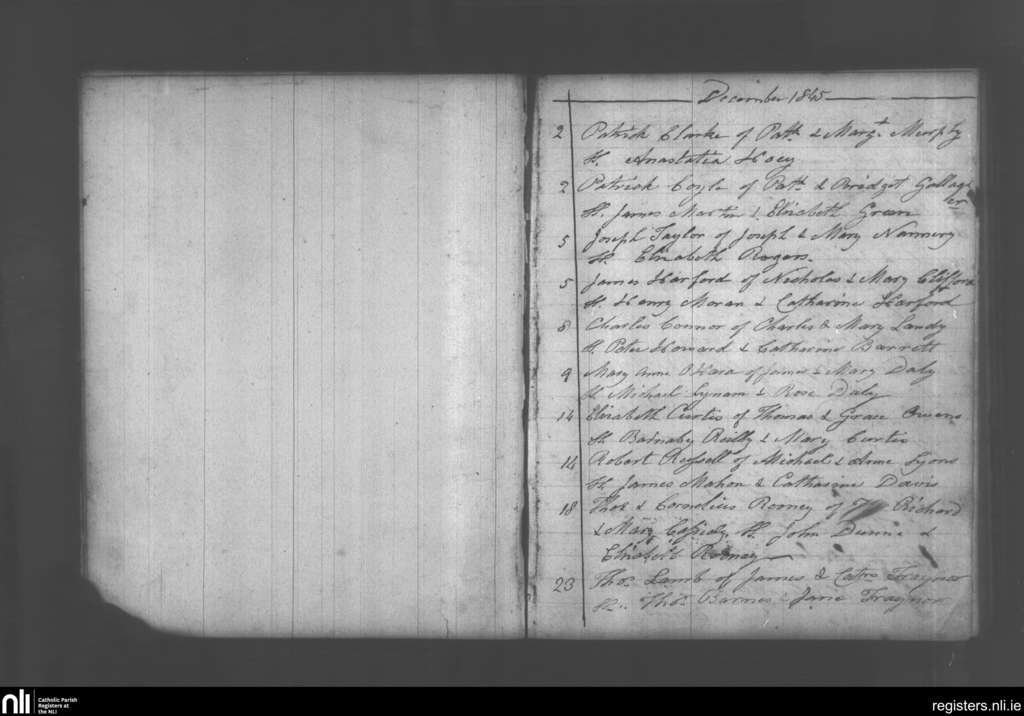 December 1845
2 Patrick Clarke of Patk & Margt Murphy
Sp. Anastatia Hoey
2 Patrick Coyle of Patk & Bridget Gallagh
er
Sp. James Martin & Elizabeth Green
5 Joseph Taylor of Joseph & Mary Nannery
Sp. Elizabeth Rogers.
5 James Harford of Nicholas & Mary Clifford
Sp. Henry Moran & Catharine Harford
8 Charles Connor of Charles & Mary Landy
Sp. Peter Howard & Catharine Barrett
9 Mary Anne O'Hara of James & Mary Daly
Sp. Michael Lynam & Rose Daly
14 Elizabeth Curtis of Thomas & Grace Owens
Sp. Barnaby Reilly & Mary Curtis
14 Robert Russell of Michael & Anne Lyons
Sp. James Mahon & Catharine Davis
18 Thos & Cornelius Rooney of Richard
& Mary Cassidy Sp. John Dunne &
Elizabeth Rooney
23 Thos Lamb of James & Cathe Traynor
Sp. Thos Barnes & Jane Traynor
nli
Catholic Parish
Registers at
the NLI
registers.nli.ie